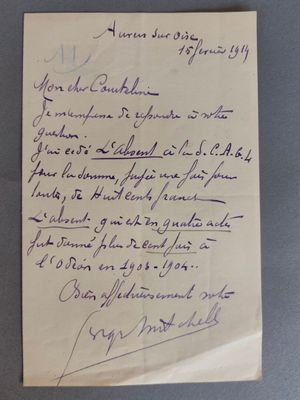 Auvers sur oise
11
15 février 1914
Mon cher Courteline
Je m'empresse de repondre à votre
question.
J'ai cédé L'absent à la S.C.A.G.L
pour la somme, payée une fois pour
toutes, de Huit cents francs
L'absent qui est en quatre actes
fut donné plus de cent fois à
l'Odéon en 1903-1904..
Bien affectueusement votre
Georges Mitchell